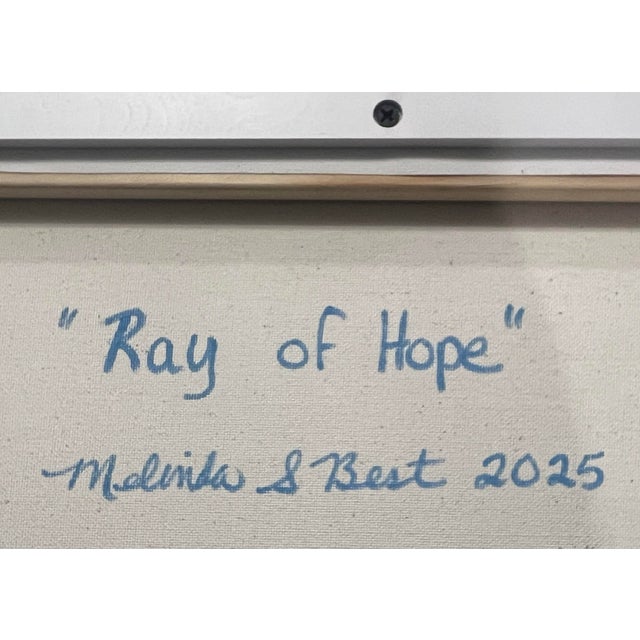 "Ray of Hope"
Melinda S Best 2025